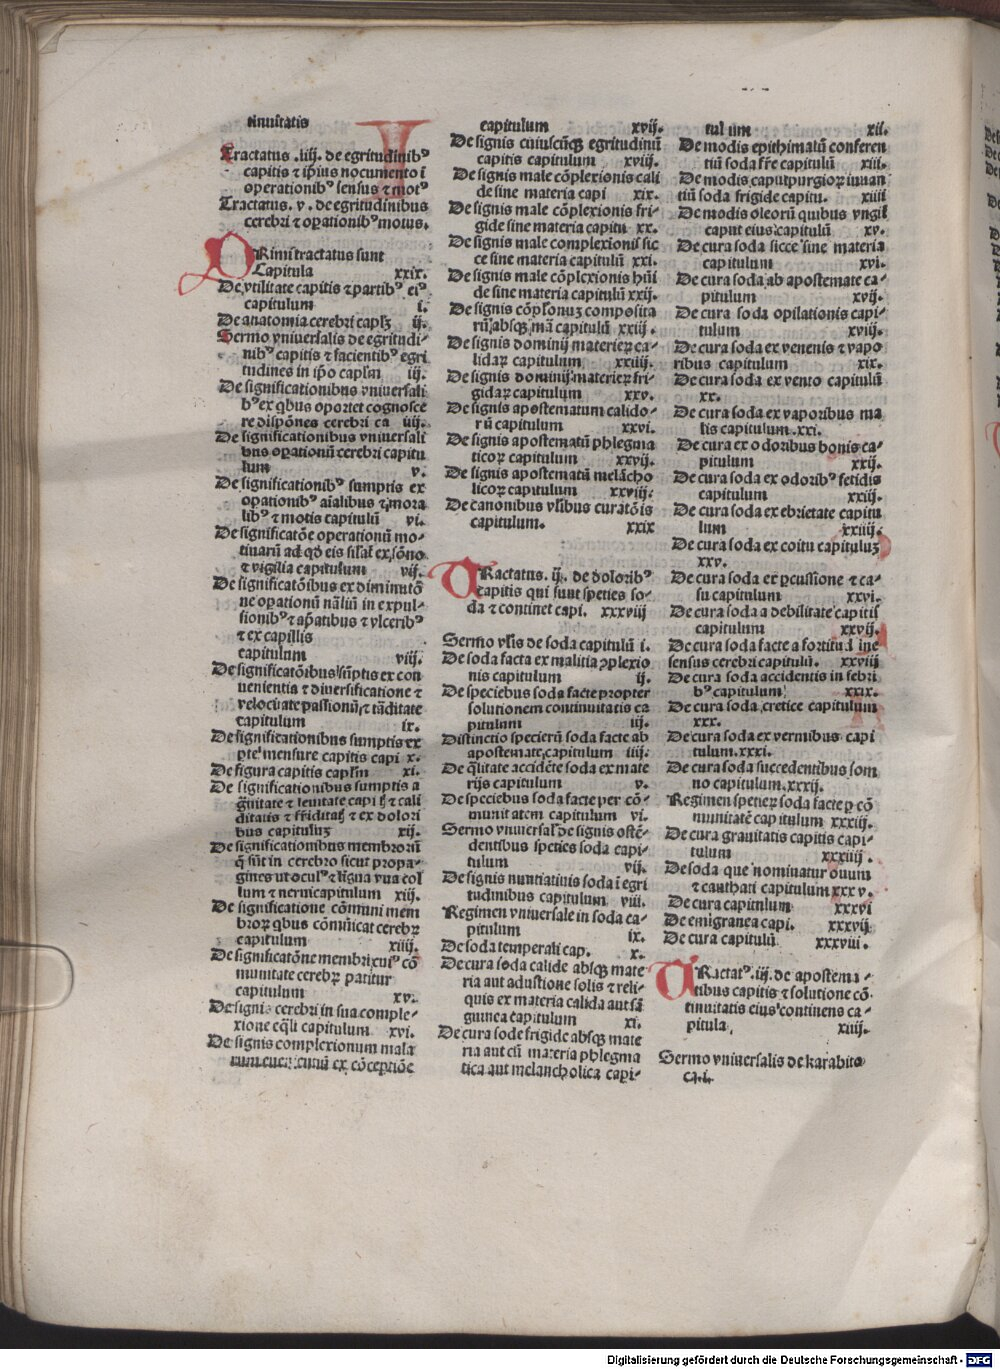 tinuitatis
Tractatus .iiij. de egritudinibꝰ
capitis ⁊ ip̄ius nocumento ī
operationibꝰ sensus ⁊ motꝰ
Tractatus. v. de egritudinibus
cerebri ⁊ oꝑationibꝰ motus.
PRimi tractatus sunt
Capitula xxix.
De vtilitate capitis ⁊ partibꝰ eiꝰ
capitulum i.
De anatomia cerebri caplꝫ ij.
Sermo vniuersalis de egritudi-
nibꝰ capitis ⁊ facientibꝰ egri
tudines in ip̄o caplm̄ iij.
De significationibus vniuersali
bꝰ ex qbus oportet cognosce
re dispōnes cerebri ca iiij.
De significationibus vniuersali
bus oꝑationū cerebri capitu
lum v.
De significationibꝰ sumptis ex
oꝑationibꝰ aīalibus ⁊ mora
libꝰ ⁊ motis capitulū vi.
De significatōe operationū mo-
tiuarū ad qd eis silāl ex sōno
⁊ vigilia capitulum vij.
De significatōibus ex diminutō
ne oꝑationū nāliū in expul-
sionibꝰ ⁊ aꝑatibus ⁊ vlceribꝰ
⁊ ex capillis
capitulum viii.
De significatōibus sūptis ex con
uenientia ⁊ diuersificatione ⁊
velocitate passionū ⁊ tarditate
capitulum ix.
De significationibus sumptis ex
ꝑte mensure capitis capi x.
De figura capitis caplm̄ xi.
De significationibus sumptis a
ḡuitate ⁊ leuitate capi
ditatis ⁊ frīditatꝭ ⁊ ex dolori
bus capitulꝫ xij.
De significationibus membrorū
q̄ sūt in cerebro sicut propa-
gines vt oculꝰ ⁊ līgua vua col
lum ⁊ nerui capitulum xiij.
De significatione cōmuni mem
broꝝ qbus cōmūicat cerebꝝ
capitulum xiiij.
De significatōne membri cuiꝰ cō
munitate cerebꝝ patitur
capitulum xv.
De signis cerebri in sua comple-
xione eq̄li capitulum xvi.
De signis complexionum mala
rum ex cōceptiōe
capitulum xvij.
De signis cuiuscūqꝫ egritudinū
capitis capitulum xviij.
De signis male cōplexionis cali
de sine materia capi xix.
De signis male cōplexionis fri-
gide sine materia capitu xx.
De signis male complexionis sic
ce sine materia capitulū xxi.
De signis male cōplexionis hūi
de sine materia capitulū xxij.
De signis cōplōnuꝫ composita
rū absqꝫ mā capitulū xxiij.
De signis dominij materieꝝ ca-
lidaꝝ capitulum xxiiij.
De signis dominij materieꝝ fri-
gidaꝝ capitulum xxv.
De signis apostematum calido-
rū capitulum xxvi.
De signis apostematū phlegma
ticoꝝ capitulum xxvij.
De signis apostematū melācho
licoꝝ capitulum xxviij.
De canonibus vlibus curatōis
capitulum. xxix
TRactatus. ij. de doloribꝰ
capitis qui sunt speties so-
da ⁊ continet capi. xxxviij
Sermo vlis de soda capitulū i.
De soda facta ex malitia ꝯplexio
nis capitulum ij.
De speciebus soda facte propter
solutionem continuitatis ca
pitulum iij.
Distinctio specierū soda facte ab
apostemate capitulum iiij.
De q̄litate accidēte soda ex mate
rijs capitulum v.
De speciebus soda facte per cō-
munitatem capitulum vi.
Sermo vniuersal̄ de signis ostē-
dentibus speties soda capi-
tulum vij.
De signis nuntiatiuis soda ī egri
tudinibus capitulum viii.
Regimen vniuersale in soda ca-
pitulum ix.
De soda temperali cap. x.
De cura soda calide absqꝫ mate
ria aut adustione solis ⁊ reli-
quis ex materia calida aut sā
guinea capitulum xi.
De cura sode frigide absqꝫ mate
ria aut cū materia phlegma
tica aut melancholica capi-
tulum xij.
De modis epithimatū conferen
tiū soda frē capitulū xiij.
De modis caputpurgioꝝ iuuan
tiū soda frigide capitu. xiiij
De modis oleorū quibus vngit̄
caput eius capitulū xv.
De cura soda sicce sine materia
capitulum xvi.
De cura soda ab apostemate ca-
pitulum xvij.
De cura soda opilationis capi-
tulum xviij.
De cura soda ex venenis ⁊ vapo
ribus capitulum xix.
De cura soda ex vento capitulū
xx.
De cura soda ex vaporibus ma
lis capitulum .xxi.
De cura ex odoribus bonis ca-
pitulum xxij.
De cura soda ex odoribꝰ fetidis
capitulum xxiij.
De cura soda ex ebrietate capitu
lum xxiiij.
De cura soda ex coitu capituluꝫ
xxv.
De cura soda ex ꝑcussione ⁊ ca-
su capitulum xxvi.
De cura soda a debilitate capitis
capitulum xxvij.
De cura soda facte a fortitudine
sensus cerebri capitulū. xxviij
De cura soda accidentis in febri
bꝰ capitulum xxix.
De cura soda cretice capitulum
xxx.
De cura soda ex vermibus capi
tulum. xxxi.
De cura soda succedentibus som
no capitulum. xxxij.
Regimen spetieꝝ soda facte ꝑ cō
munitatē capitulum xxxiij.
De cura grauitatis capitis capi-
tulum xxxiiij.
De soda que nominatur ouum
⁊ cauthati capitulum xxxv.
De cura capitulum xxxvi
De emigranea capi. xxxvij
De cura capitulū xxxviii.
TRactatꝰ. iij. de apostema-
tibus capitis ⁊ solutione cō-
tinuitatis eius continens ca-
pitula xiij.
Sermo vniuersalis de karabito
ca.i.
Digitalisierung gefördert durch die Deutsche Forschungsgemeinschaft - DFG